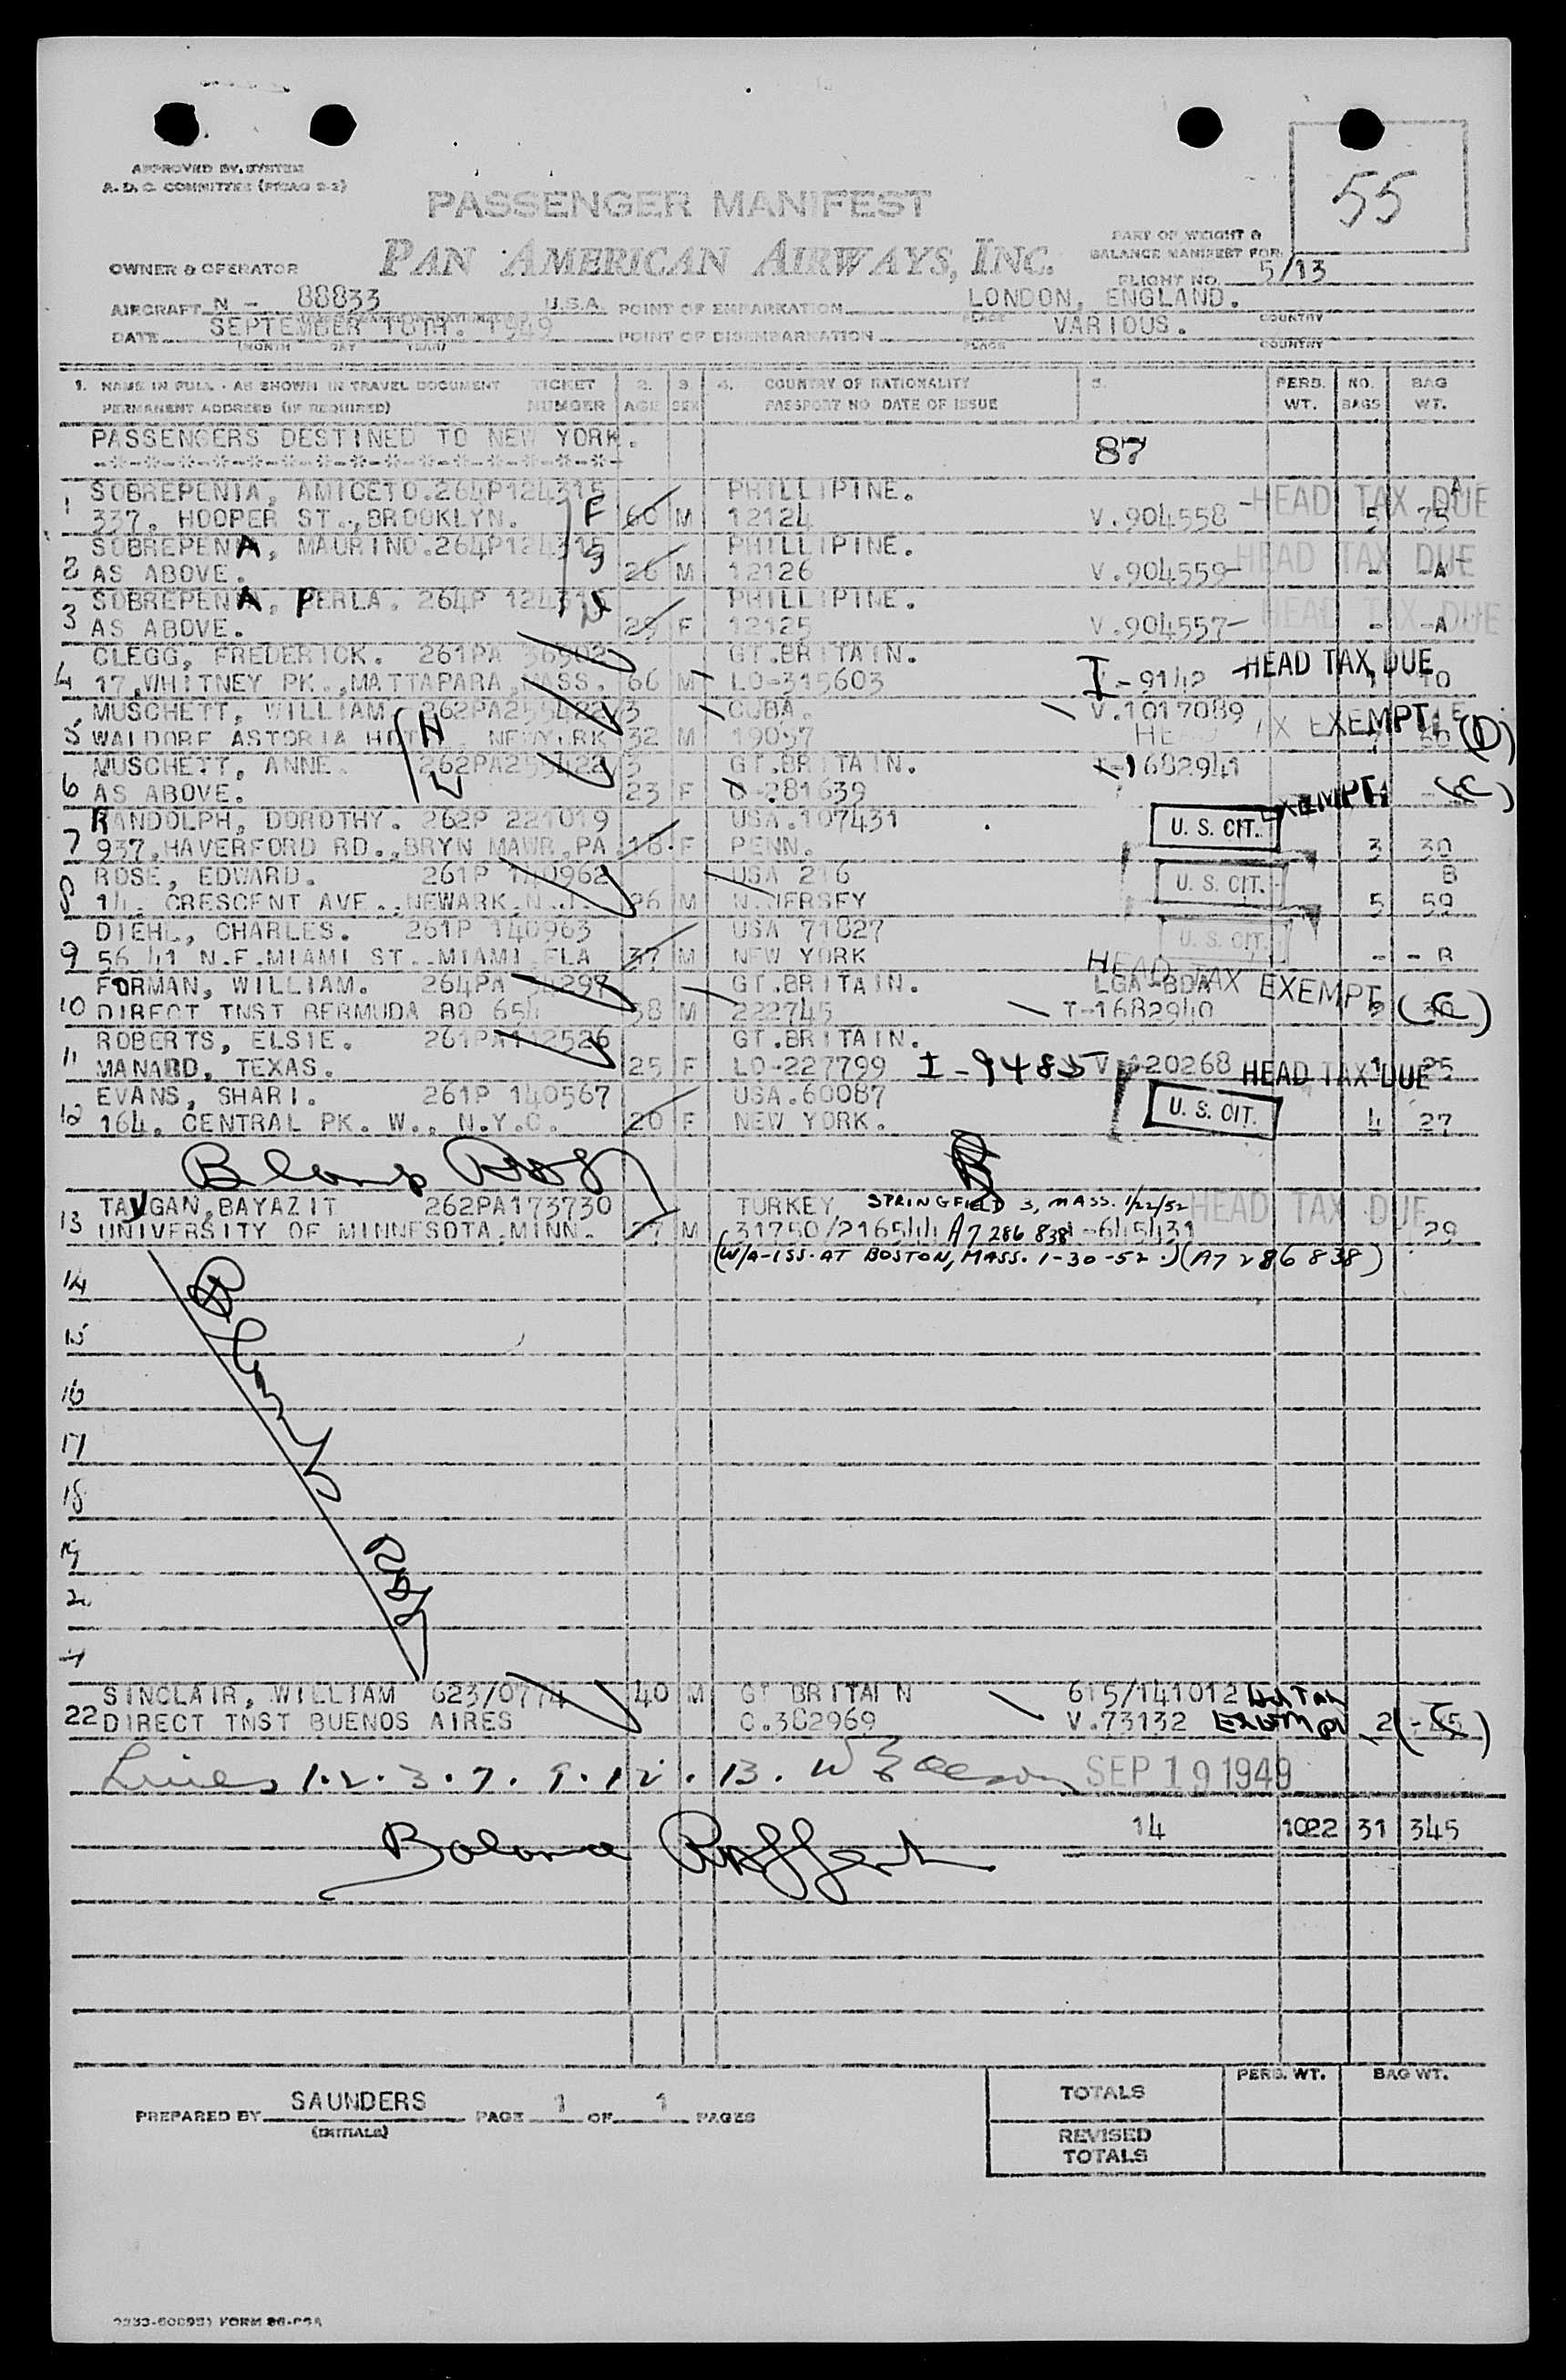 55
APPROVED BY SYSTEM
A. D. C. COMMITTEE (PICAO 2-2)
PASSENGER MANIFEST
PAN AMERICAN AIRWAYS, INC.
PART OF WEIGHT &
BALANCE MANIFEST FOR
OWNER & OPERATOR
FLIGHT NO. 5/13
AIRCRAFT N - 88833 U.S.A. POINT OF EMBARKATION LONDON, ENGLAND.
PLACE COUNTRY
DATE SEPTEMBER 18TH. 1949 POINT OF DISEMBARKATION VARIOUS.
(MONTH DAY YEAR) PLACE COUNTRY
1. NAME IN FULL - AS SHOWN IN TRAVEL DOCUMENT TICKET 2. 3. 4. COUNTRY OF NATIONALITY 5. PERS. NO. BAG
PERMANENT ADDRESS (IF REQUIRED) NUMBER AGE SEX PASSPORT NO DATE OF ISSUE WT. BAGS WT.
PASSENGERS DESTINED TO NEW YORK.
-*-*-*-*-*-*-*-*-*-*-*-*-*-*-*- 87
SOBREPENIA, AMICETO.264P124315 PHILLIPINE. A
1 337, HOOPER ST.,BROOKLYN. F 60 M 12124 V.904558 - HEAD TAX DUE 5 75
SOBREPENA, MAURINO.264P124315 PHILLIPINE.
2 AS ABOVE. S 26 M 12126 V.904559- HEAD TAX DUE - -A
SOBREPENA, PERLA. 264P 124315 PHILLIPINE.
3 AS ABOVE. 25 F 12125 V.904557- HEAD TAX DUE - -A
CLEGG, FREDERICK. 261PA 36502 GT.BRITAIN.
4 17,WHITNEY PK.,MATTAPARA,MASS. 66 M LO-315603 I - 9142 HEAD TAX DUE
MUSCHETT, WILLIAM 262PA255422/3 CUBA. V.1017089
5 WALDORF ASTORIA HOTEL, NEWYORK 32 M 19057 HEAD TAX EXEMPT (D)
H
W
MUSCHETT, ANNE. 262PA255422/3 GT.BRITAIN. I-1682941
6 AS ABOVE. 23 F C-281639 EXEMPT (C)
RANDOLPH, DOROTHY. 262P 221019 USA.107431 U. S. CIT.
7 937,HAVERFORD RD.,BRYN MAWR,PA.18 F PENN. 3 30
ROSE, EDWARD. 261P 140962 USA 216 U. S. CIT. B
8 14, CRESCENT AVE.,NEWARK,N.J. 26 M N.JERSEY 5 59
DIEHL, CHARLES. 261P 140963 USA 71827 U. S. CIT.
9 56 41 N.E.MIAMI ST..MIAMI FLA 37 M NEW YORK - - B
FORMAN, WILLIAM. 264PA 34297 GT.BRITAIN. LGA-BDA HEAD TAX EXEMPT
10 DIRECT TNST BERMUDA BD 654 38 M 222745 T-1682940 (C)
ROBERTS, ELSIE. 261PA112526 GT.BRITAIN.
11 MANARD, TEXAS. 25 F LO-227799 I-9485 V.120268 HEAD TAX DUE 1 25
EVANS, SHARI. 261P 140567 USA.60087
12 164, CENTRAL PK. W., N.Y.C. 20 F NEW YORK. U. S. CIT. 4 27
TAYGAN,BAYAZIT 262PA173730 TURKEY SPRINGFIELD 3, MASS. 1/22/52 HEAD TAX DUE
13 UNIVERSITY OF MINNESOTA,MINN. 27 M 31750/216544 A7 286 838 -645431 29
(W/A-ISS. AT BOSTON, MASS. 1-30-52.)(A7 286 838)
14
15
16
17
18
19
SINCLAIR, WILLIAM 623/0774 40 M GT BRITAIN 615/141012 Hd Tax
22 DIRECT TNST BUENOS AIRES C.382969 V.73132 Exempt 2 (C)
Lines 1.2.3.7.9.12.13. SEP 19 1949
14 1022 31 345
PREPARED BY SAUNDERS PAGE 1 OF 1 PAGES
(INITIALS)
PERS. WT. BAG WT.
TOTALS
REVISED
TOTALS